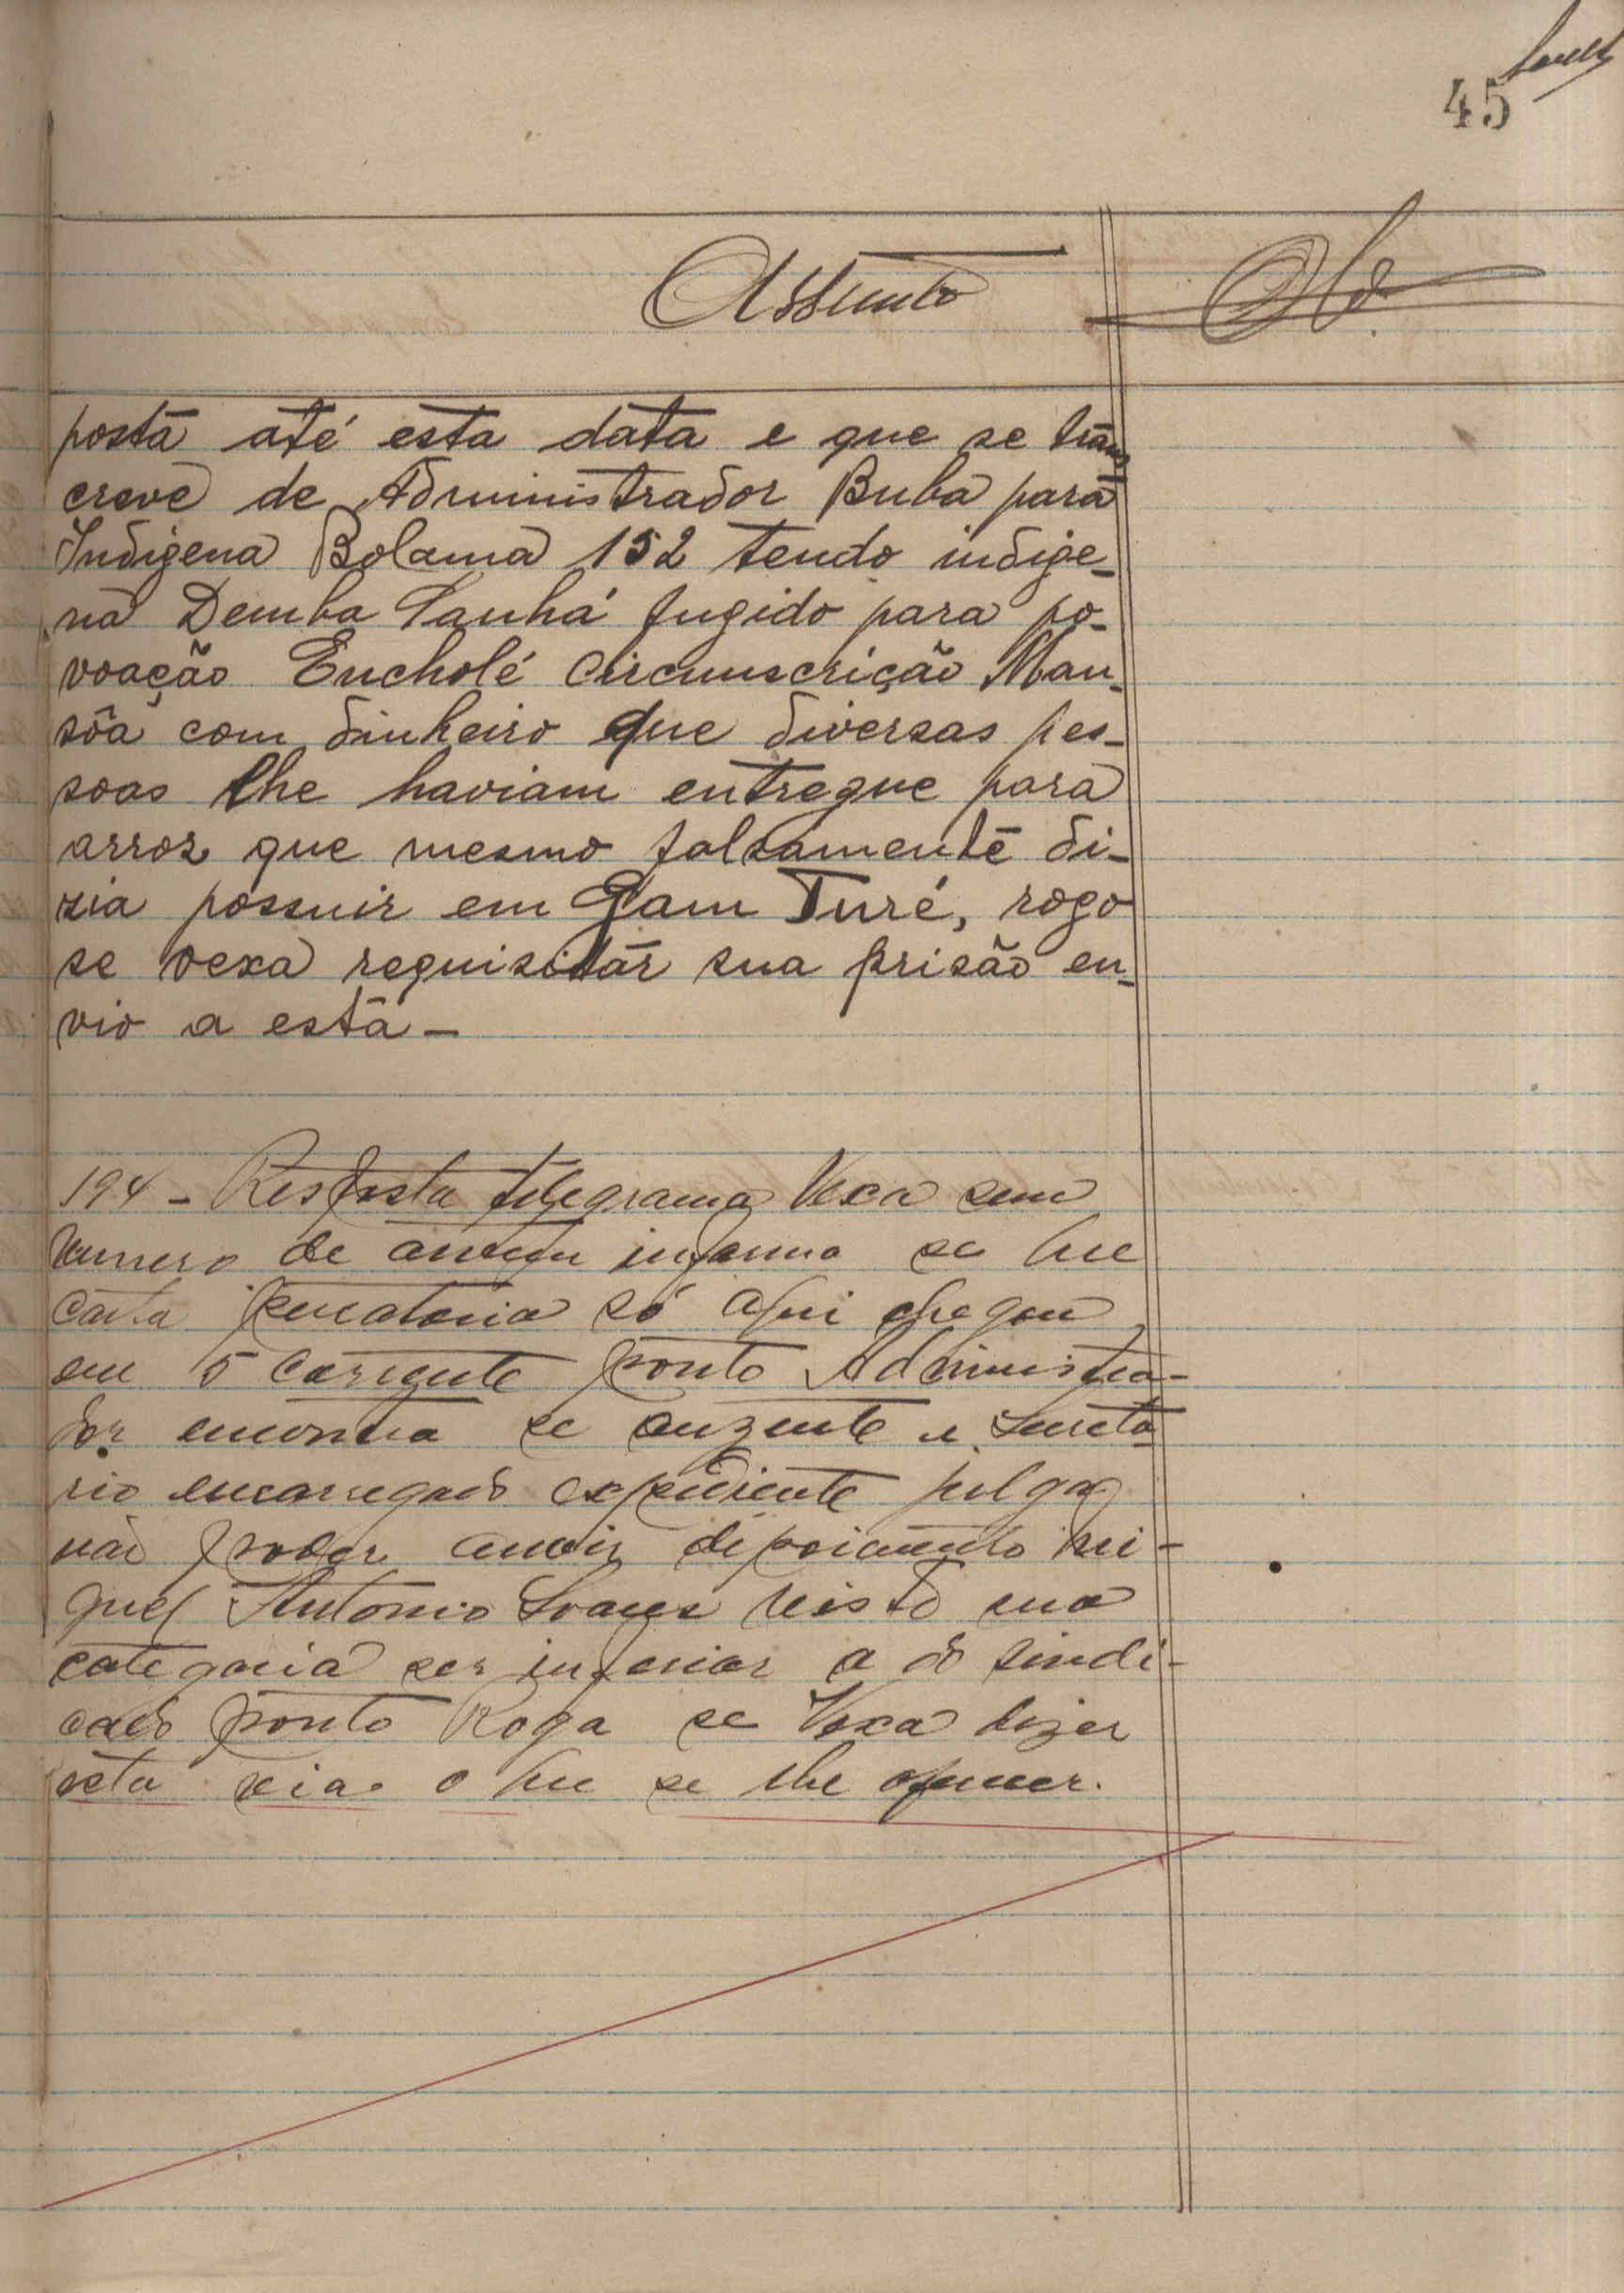 45
Assunto
Obs.
posta até esta data e que se trans
creve de Administrador Buba para
Indigena Bolama 152 tendo indige-
na Demba Sanhá fugido para po-
voação Encholé circunscrição Man-
sôa com dinheiro que diversas pes-
soas lhe haviam entregue para
arroz que mesmo falsamente di-
zia possuir em Gam Turé, rogo
se vexa requisitar sua prisão en-
vio a esta -
194 - Resposta telegrama Vexa sem
numero de ontem informo se que
carta precatoria só aqui chegou
em 5 corrente ponto Administra-
dor encontra se auzente e Secreta
rio encarregado expediente julga
não poder ouvir depoimento Mi-
guel Antonio Soares visto sua
categoria ser inferior a do sindi-
cado ponto Roga se Vexa dizer
esta via o que se lhe oferecer.